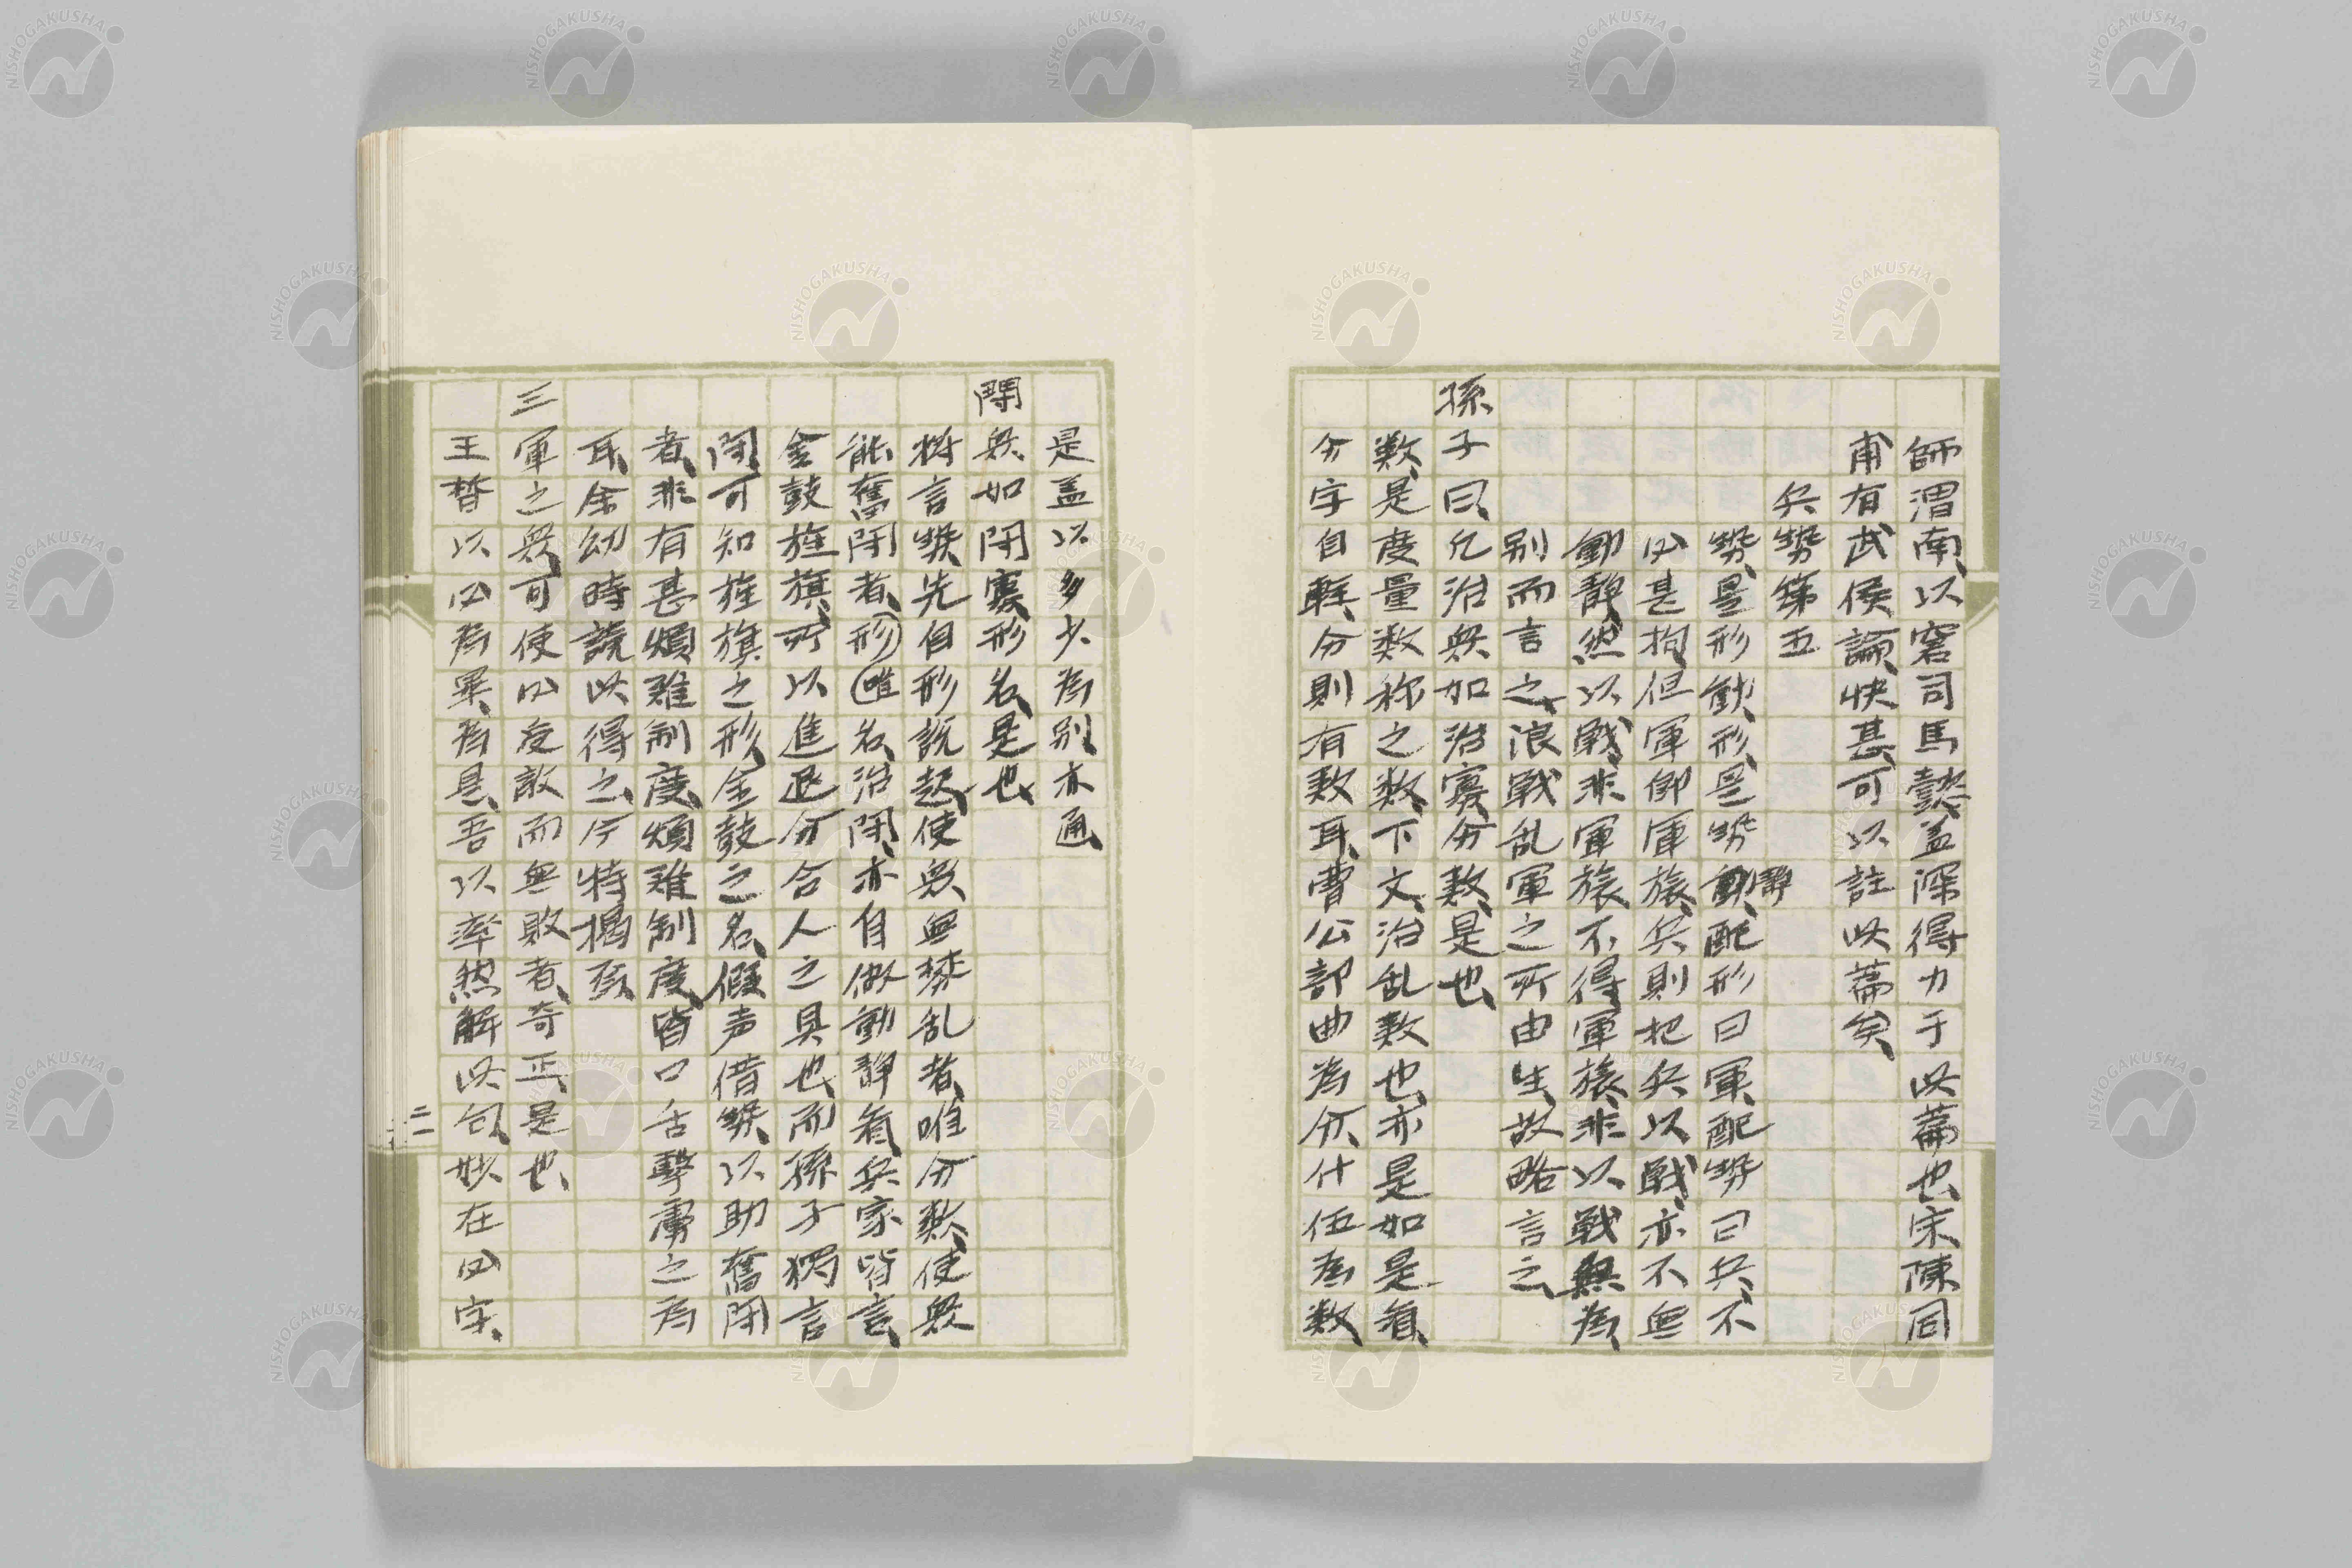 師渭南、以窘司馬懿、盖深得力于此篇也、宋陳同
甫有武侯論、快甚、可以註此篇矣、
兵勢第五
勢是形動、形是勢靜、配形曰軍、配勢曰兵、不
必甚拘、但軍即軍旅、兵則把兵以戰、亦不無
動靜、然以戰、非軍旅不得、軍旅、非以戰無為、
別而言之、浪戰乱軍之所由生、故略言之、
孫子曰、凡治衆如治寡、分数是也、
数、是度量数称之数、数下文、治乱数也、亦是如是看、
分字自輕、分則有数耳、曹公部曲為分、什伍為数
是盖以多少為別、亦通、
鬪衆如鬪寡、形名是也、
将言勢、先自形説起、使衆無棼乱者、唯分数、使衆
能奮鬪者、形唯名、治鬪、亦自做動靜看、兵家皆言、
金鼓旌旗、所以進退分合人之具也、而孫子獨言
鬪、可知旌旗之形、金鼓之名、假声借勢、以助奮鬪
者、非有甚煩雜制度、煩雜制度、皆口舌擊虜之為
耳、余幼時読此得之、斤特揭孫、
三軍之衆、可使必受敵而無敗者、奇正是也、
王晳以必為畢、為是、吾以率然解此句、妙在必字、
二一